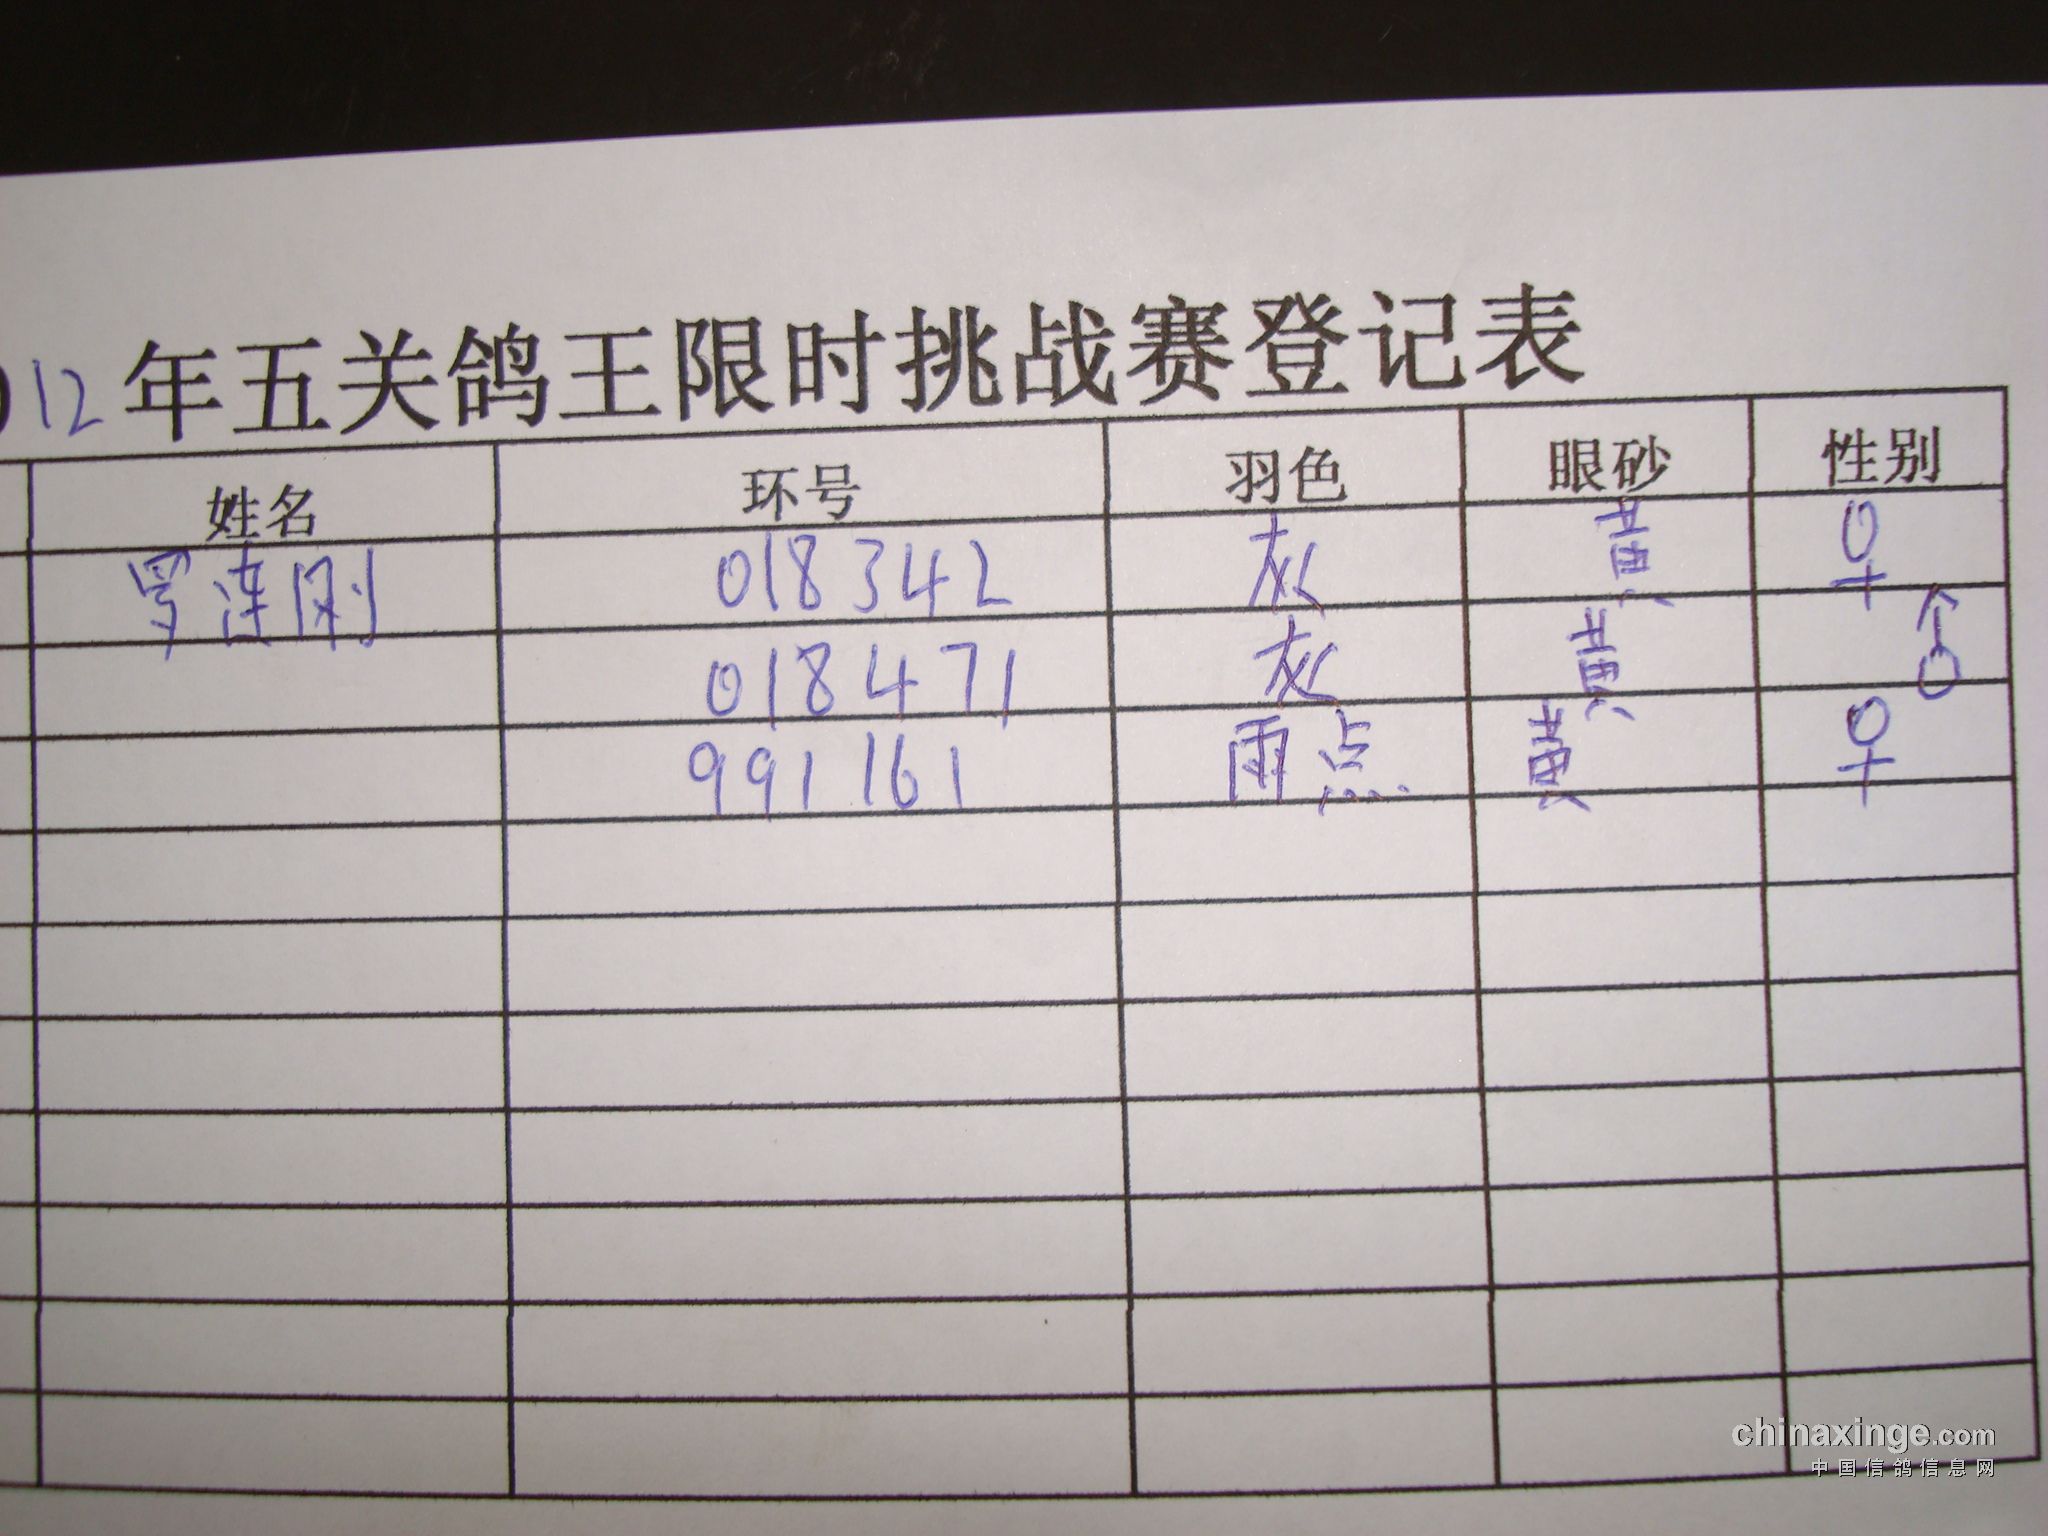 12年五关鸽王限时挑战赛登记表
姓名 环号 羽色 眼砂 性别
罗连刚 018342 灰 黄 ♀
018471 灰 黄 ♂
991161 雨点 黄 ♀
chinaxinge.com
中国信鸽信息网